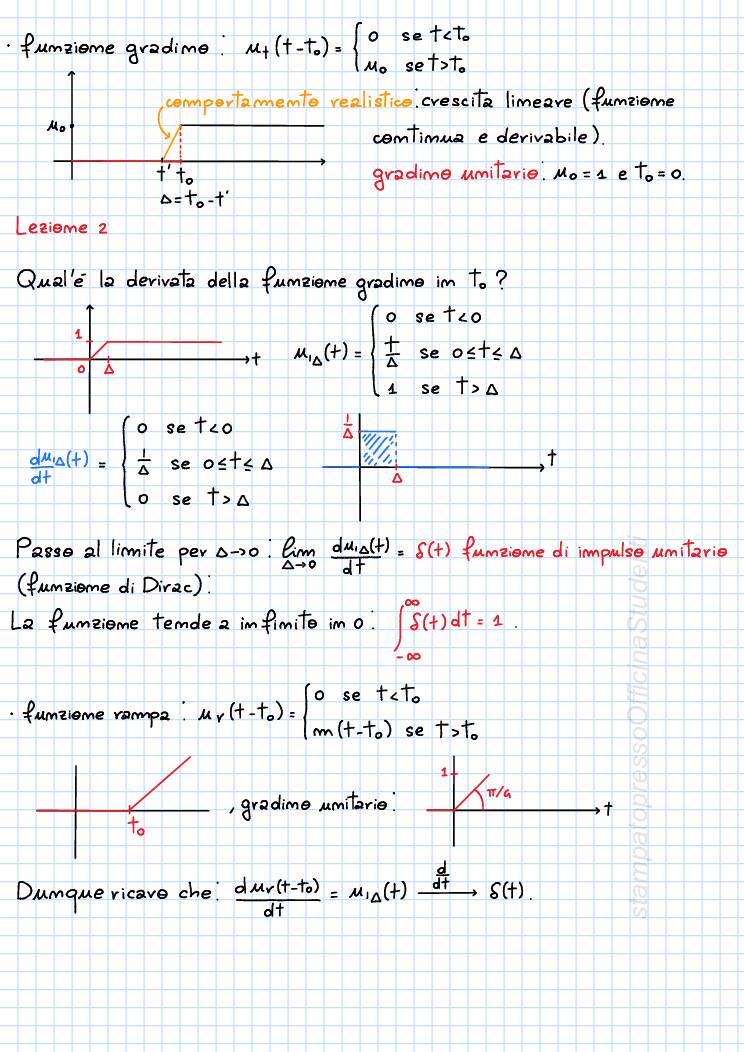 · funzione gradino: u₊(t-t₀) = { 0 se t<t₀
u₀ se t>t₀
comportamento realistico: crescita lineare (funzione
u₀
continua e derivabile).
t' t₀
gradino unitario: u₀ = 1 e t₀ = 0.
Δ = t₀-t'
Lezione 2
Qual'é la derivata della funzione gradino in t₀?
1
0 Δ t
u₁Δ(t) = { 0 se t<0
t/Δ se 0≤t≤Δ
1 se t>Δ
du₁Δ(t)/dt = { 0 se t<0
1/Δ se 0≤t≤Δ
0 se t>Δ
1/Δ
Δ t
Passo al limite per Δ→0: lim Δ→0 du₁Δ(t)/dt = δ(t) funzione di impulso unitario
(funzione di Dirac):
La funzione tende a infinito in 0: ∫₋∞^∞ δ(t)dt = 1.
· funzione rampa: uᵣ(t-t₀) = { 0 se t<t₀
m(t-t₀) se t>t₀
t₀
, gradino unitario:
1
π/4
t
Dunque ricavo che: duᵣ(t-t₀)/dt = u₁Δ(t) d/dt→ δ(t).
stampatopressoOfficinaStudenti